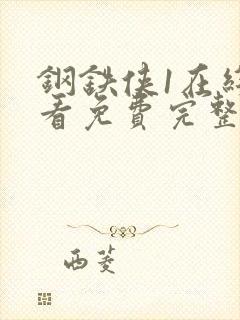 鋼鉄俠1在線
看免費完整
西菱